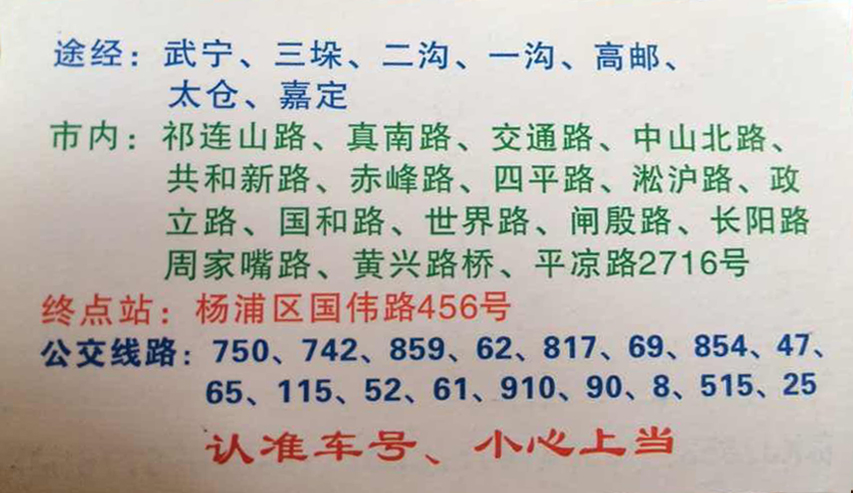 途经：武宁、三垛、二沟、一沟、高邮、
太仓、嘉定
市内：祁连山路、真南路、交通路、中山北路、
共和新路、赤峰路、四平路、淞沪路、政
立路、国和路、世界路、闸殷路、长阳路
周家嘴路、黄兴路桥、平凉路2716号
终点站：杨浦区国伟路456号
公交线路：750、742、859、62、817、69、854、47、
65、115、52、61、910、90、8、515、25
认准车号、小心上当